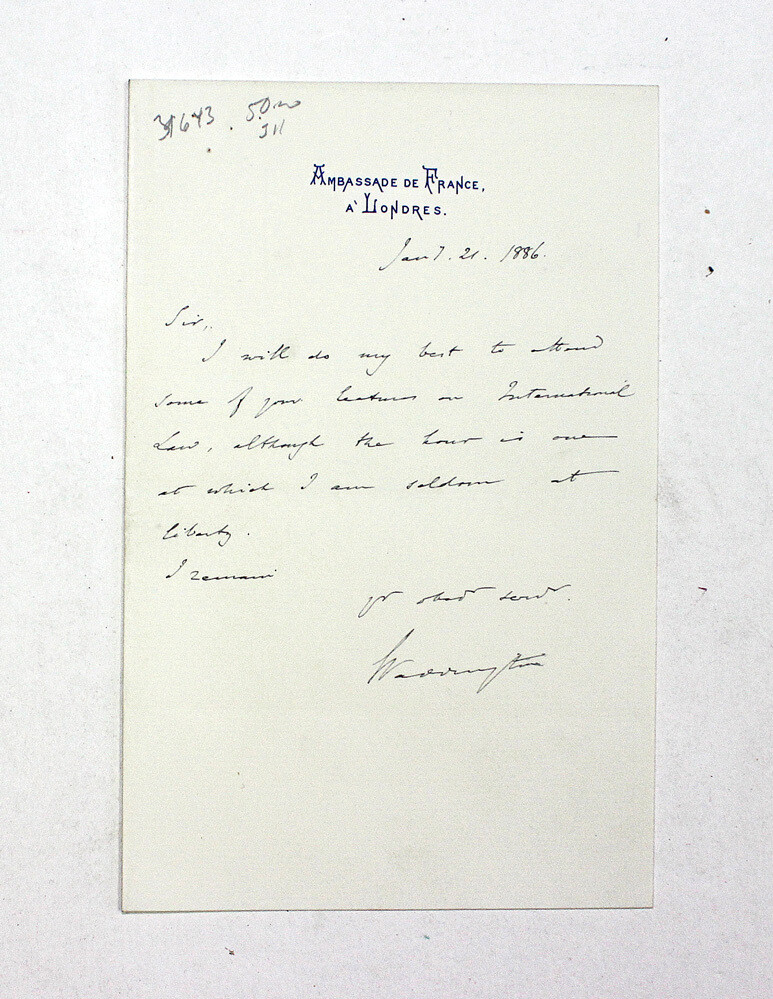 31643 . 50.00
JH
AMBASSADE DE FRANCE,
A' LONDRES.
Jany. 21. 1886.
Sir,
I will do my best to attend
some of your lectures on International
Law, although the hour is one
at which I am seldom at
liberty.
I remain
yr obedt servt.
Waddington